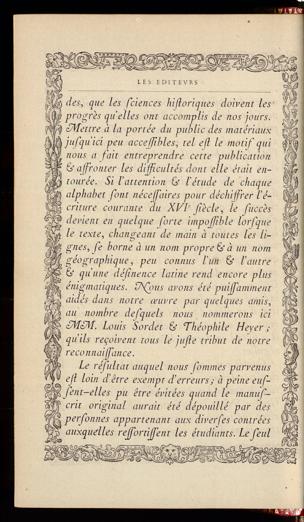 LES EDITEVRS
des, que les ſciences hiſtoriques doivent les
progrès qu'elles ont accomplis de nos jours.
Mettre à la portée du public des matériaux
juſqu'ici peu acceſſibles, tel eſt le motif qui
nous a fait entreprendre cette publication
& affrouter les difficultés dont elle était en-
tourée. Si l'attention & l'étude de chaque
alphabet ſont néceſſaires pour déchiffrer l'é-
criture courante du XVIᵉ ſiècle, le ſuccès
devient en quelque ſorte impoſſible lorſque
le texte, changeant de main à toutes les li-
gnes, ſe borne à un nom propre & à un nom
géographique, peu connus l'un & l'autre
& qu'une déſinence latine rend encore plus
énigmatiques. Nous avons été puiſſamment
aidés dans notre œuvre par quelques amis,
au nombre deſquels nous nommerons ici
MM. Louis Sordet & Théophile Heyer ;
qu'ils reçoivent tous le juſte tribut de notre
reconnaiſſance.
Le réſultat auquel nous ſommes parvenus
eſt loin d'être exempt d'erreurs ; à peine euſ-
ſent-elles pu être évitées quand le manuſ-
crit original aurait été dépouillé par des
perſonnes appartenant aux diverſes contrées
auxquelles reſſortiſſent les étudiants. Le ſeul